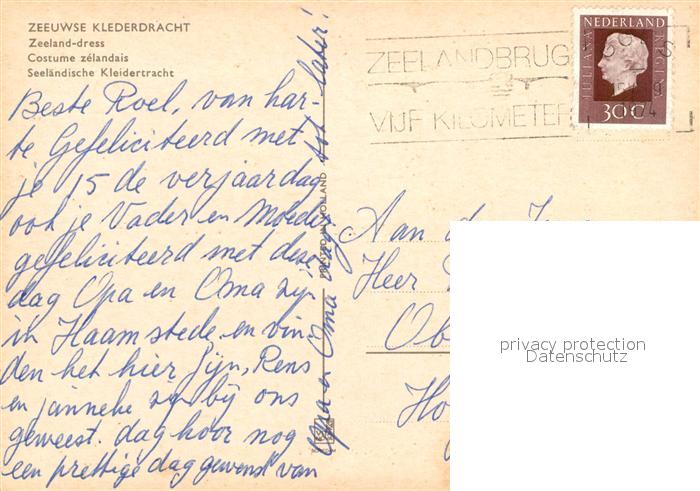 ZEEUWSE KLEDERDRACHT
Zeeland-dress
Costume zélandais
Seeländische Kleidertracht
Beste Roel, van har-
te Gefeliciteerd met
je 15 de verjaardag
ook je Vader en Moeder
gefeliciteerd met deze
dag Opa en Oma zijn
in Haamstede en vin-
den het hier fijn, Rens
en janneke zijn bij ons
geweest. dag hoor nog
een prettige dag gewenst van
Opa en Oma dag tot later!
PRINTED IN HOLLAND
ZEELANDBRUG
VIJF KILOMETER
NEDERLAND
JULIANA REGINA
30c
Aan de
Heer
Ob
Ho
privacy protection
Datenschutz